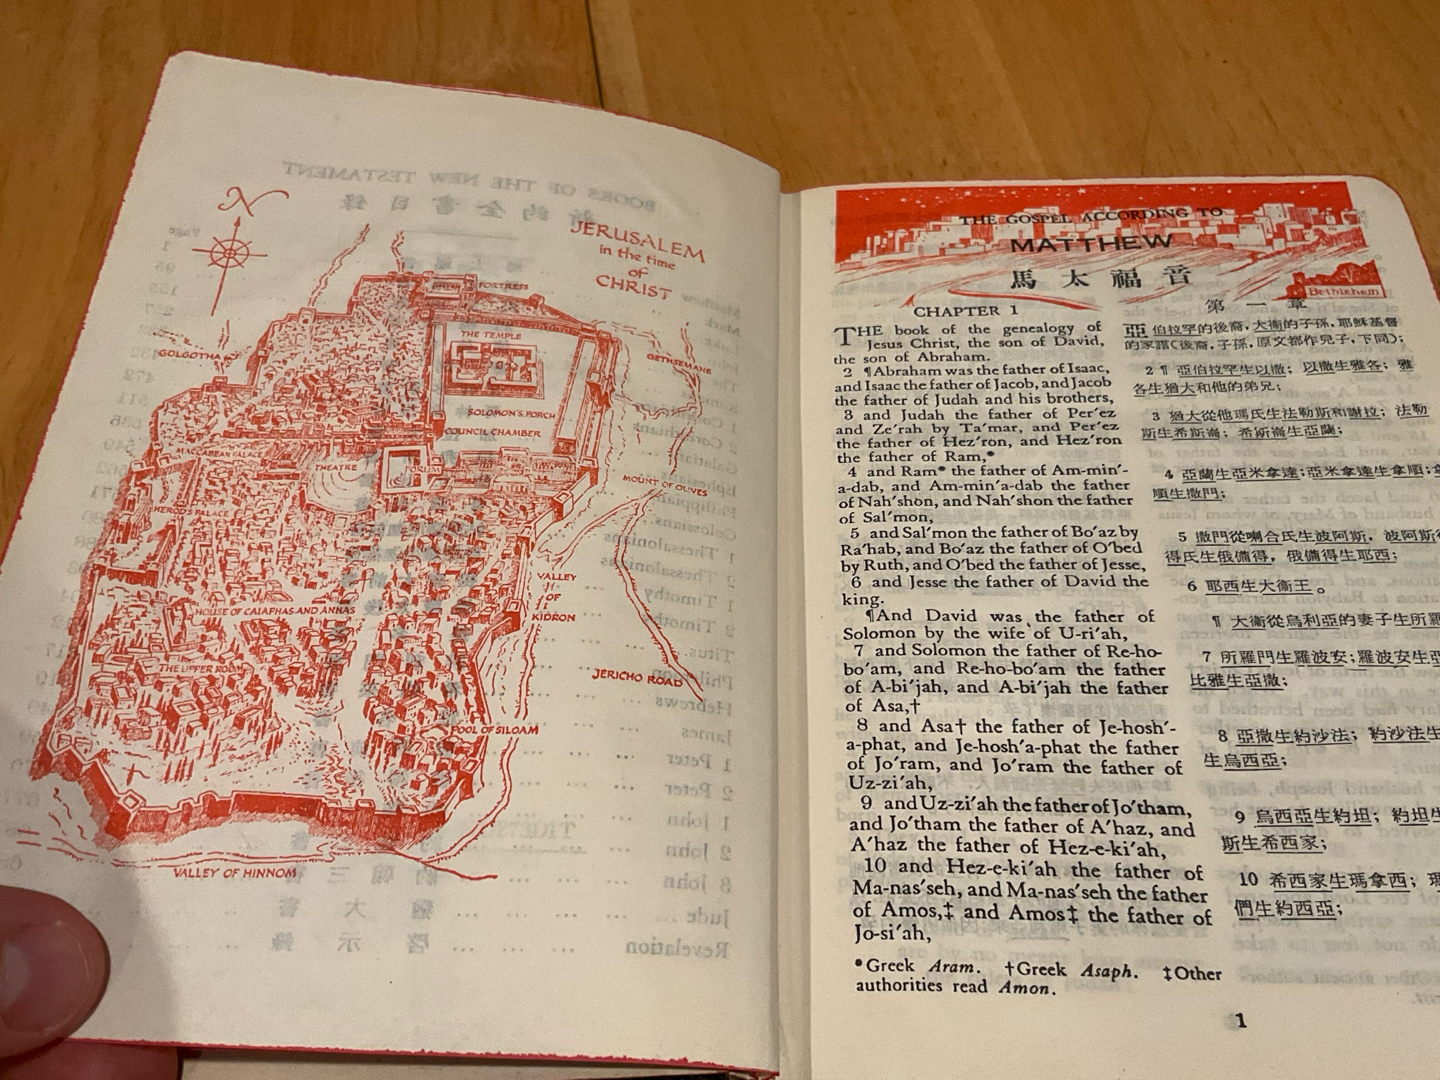 N
JERUSALEM
in the time
of
CHRIST
FORTRESS
THE TEMPLE
GOLGOTHA
GETHSEMANE
SOLOMON'S PORCH
COUNCIL CHAMBER
MACCABEAN PALACE
THEATRE
FORUM
MOUNT OF OLIVES
HEROD'S PALACE
VALLEY
OF
KIDRON
HOUSE OF CAIAPHAS AND ANNAS
THE UPPER ROOM
JERICHO ROAD
POOL OF SILOAM
VALLEY OF HINNOM
THE GOSPEL ACCORDING TO
MATTHEW
馬太福音
Bethlehem
CHAPTER 1
THE book of the genealogy of
Jesus Christ, the son of David,
the son of Abraham.
2 ¶Abraham was the father of Isaac,
and Isaac the father of Jacob, and Jacob
the father of Judah and his brothers,
3 and Judah the father of Per′ez
and Ze′rah by Ta′mar, and Per′ez
the father of Hez′ron, and Hez′ron
the father of Ram,*
4 and Ram* the father of Am-min′-
a-dab, and Am-min′a-dab the father
of Nah′shon, and Nah′shon the father
of Sal′mon,
5 and Sal′mon the father of Bo′az by
Ra′hab, and Bo′az the father of O′bed
by Ruth, and O′bed the father of Jesse,
6 and Jesse the father of David the
king.
¶And David was the father of
Solomon by the wife of U-ri′ah,
7 and Solomon the father of Re-ho-
bo′am, and Re-ho-bo′am the father
of A-bi′jah, and A-bi′jah the father
of Asa,†
8 and Asa† the father of Je-hosh′-
a-phat, and Je-hosh′a-phat the father
of Jo′ram, and Jo′ram the father of
Uz-zi′ah,
9 and Uz-zi′ah the father of Jo′tham,
and Jo′tham the father of A′haz, and
A′haz the father of Hez-e-ki′ah,
10 and Hez-e-ki′ah the father of
Ma-nas′seh, and Ma-nas′seh the father
of Amos,‡ and Amos‡ the father of
Jo-si′ah,
*Greek Aram. †Greek Asaph. ‡Other
authorities read Amon.
第一章
亞伯拉罕的後裔，大衞的子孫，耶穌基督
的家譜（後裔，子孫，原文都作兒子，下同）；
2 ¶ 亞伯拉罕生以撒；以撒生雅各；雅
各生猶大和他的弟兄；
3 猶大從他瑪氏生法勒斯和謝拉；法勒
斯生希斯崙；希斯崙生亞蘭；
4 亞蘭生亞米拿達；亞米拿達生拿順；拿
順生撒門；
5 撒門從喇合氏生波阿斯，波阿斯從
得氏生俄備得，俄備得生耶西；
6 耶西生大衞王。
¶ 大衞從烏利亞的妻子生所羅
7 所羅門生羅波安；羅波安生亞
比雅生亞撒；
8 亞撒生約沙法；約沙法生
生烏西亞；
9 烏西亞生約坦；約坦生
斯生希西家；
10 希西家生瑪拿西；瑪
們生約西亞；
1